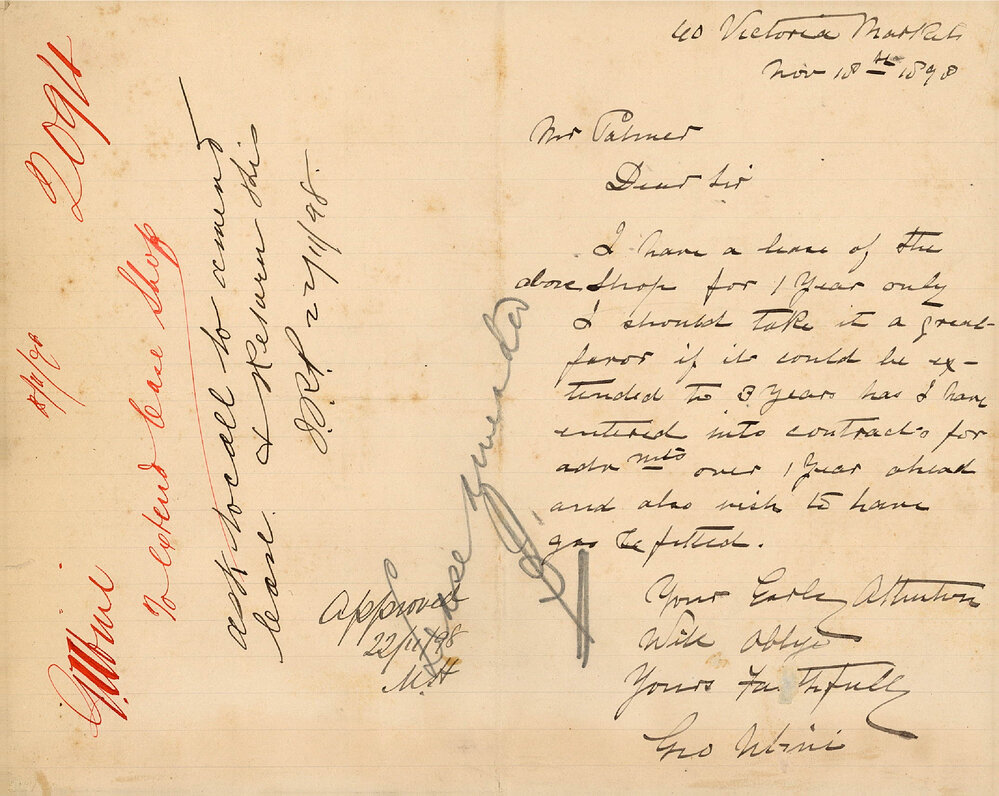 40 Victoria Markets
Nov 18th 1898
Mr Palmer
Dear Sir
I have a lease of the
above Shop for 1 Year only
I should take it a great
favor if it could be ex-
tended to 3 Years has I have
entered into contracts for
advmts over 1 Year ahead
and also wish to have
gas refitted.
Your Early Attention
Will Oblige
Yours Faithfully
Geo
Approved
22/11/98
M.H
Lease Amended
ask to call to amend
lease & Return this
22/11/98
To extend lease Shop
2094